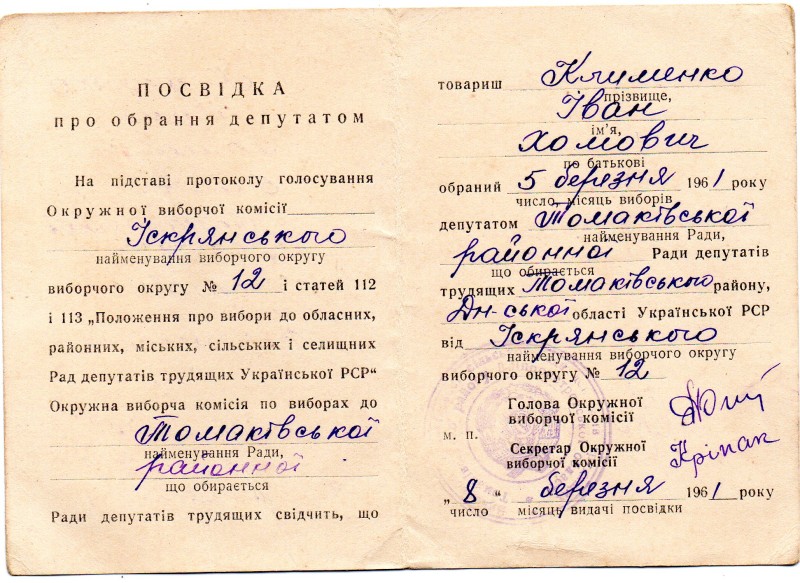 ПОСВІДКА
про обрання депутатом
На підставі протоколу голосування
Окружної виборчої комісії
Іскрянського
найменування виборчого округу
виборчого округу № 12 і статей 112
і 113 „Положення про вибори до обласних,
районних, міських, сільських і селищних
Рад депутатів трудящих Української РСР“
Окружна виборча комісія по виборах до
Томаківської
найменування Ради,
районної
що обирається
Ради депутатів трудящих свідчить, що
товариш Клименко
прізвище,
Іван
ім'я,
Хомович
по батькові
обраний 5 березня 1961 року
число, місяць виборів
депутатом Томаківської
найменування Ради,
районної Ради депутатів
що обирається
трудящих Томаківського району,
Дн-ської області Української РСР
від Іскрянського
найменування виборчого округу
виборчого округу № 12
Голова Окружної
виборчої комісії
м. п.
Секретар Окружної
виборчої комісії
Кріпак
„8“ березня 1961 року
число місяць видачі посвідки